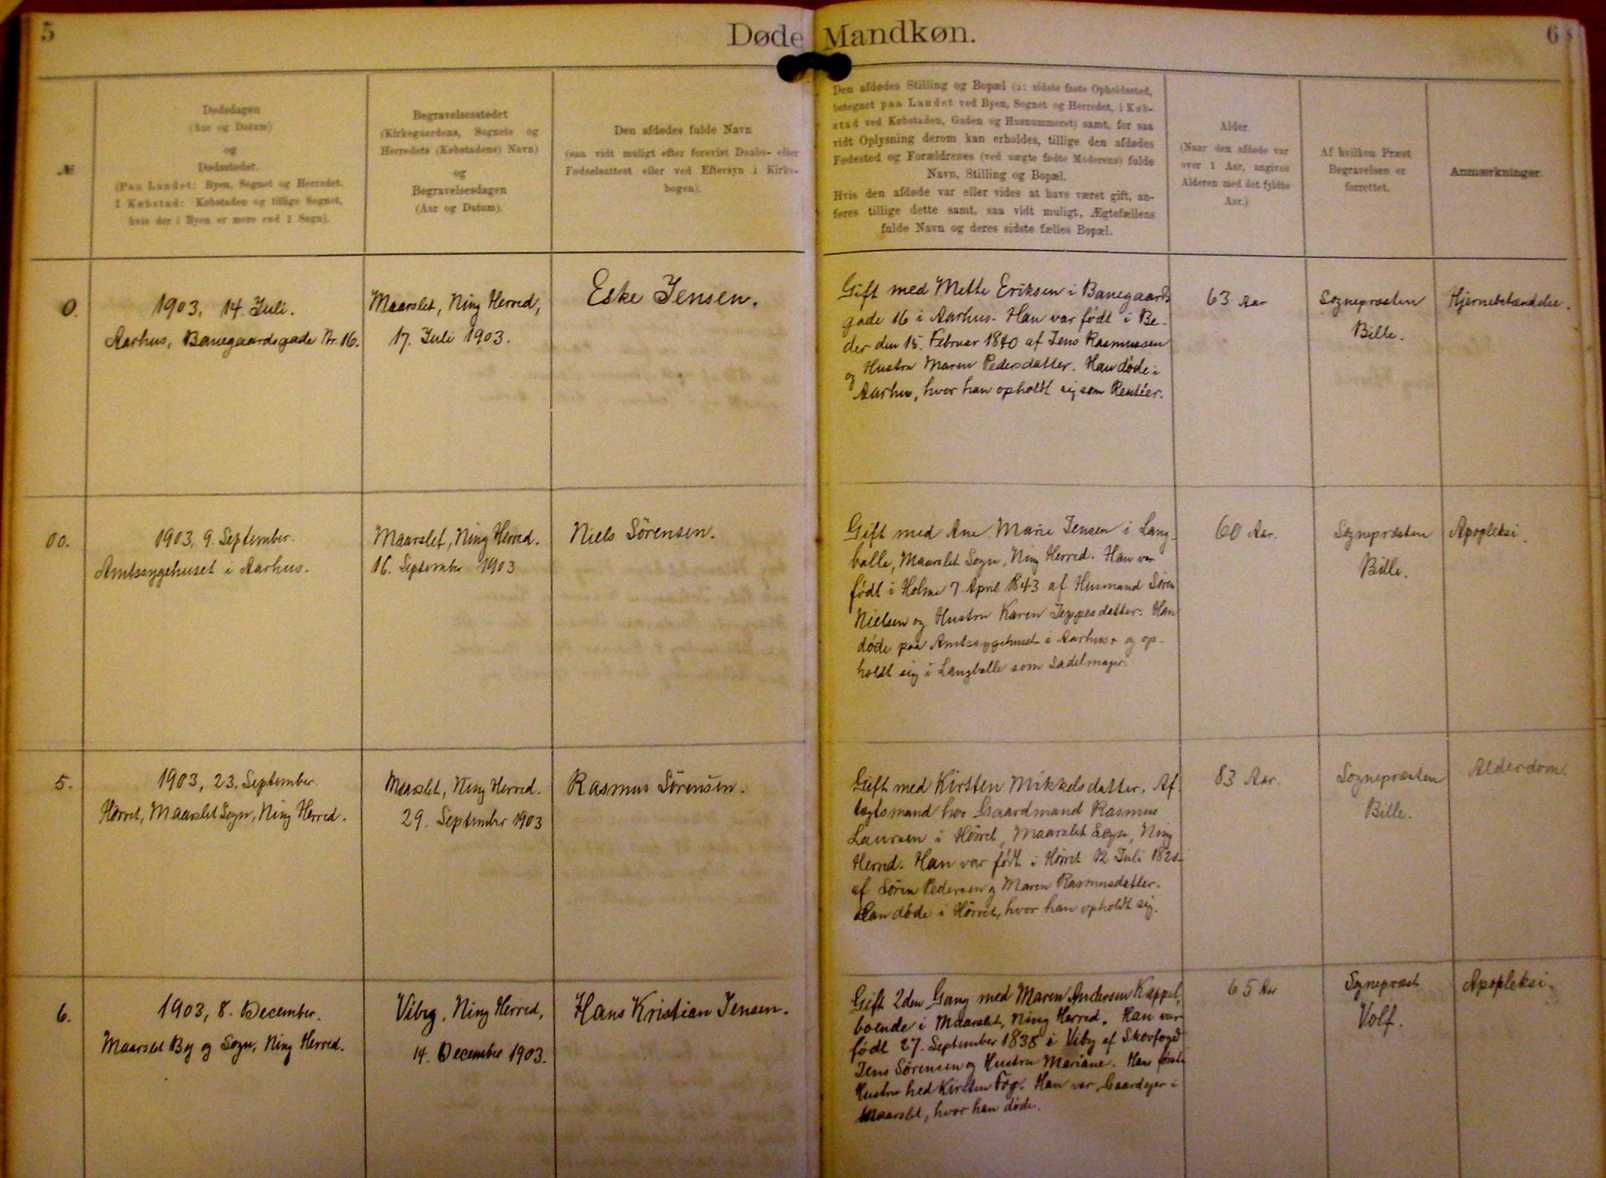 5
Døde Mandkøn.
6
№
Dødsdagen
(Aar og Datum)
og
Dødsstedet.
(Paa Landet: Byen, Sognet og Herredet.
I Købstad: Købstaden og tillige Sognet,
hvis der i Byen er mere end 1 Sogn).
Begravelsesstedet
(Kirkegaardens, Sognets og
Herredets (Købstadens) Navn)
og
Begravelsesdagen
(Aar og Datum).
Den afdødes fulde Navn
(saa vidt muligt efter forevist Daabs- eller
Fødselsattest eller ved Eftersyn i Kirke-
bogen).
Den afdødes Stilling og Bopæl (o: sidste faste Opholdssted,
betegnet paa Landet ved Byen, Sognet og Herredet, i Køb-
stad ved Købstaden, Gaden og Husnummeret) samt, for saa
vidt Oplysning derom kan erholdes, tillige den afdødes
Fødested og Forældrenes (ved uægte fødte Moderens) fulde
Navn, Stilling og Bopæl.
Hvis den afdøde var eller vides at have været gift, an-
føres tillige dette samt, saa vidt muligt, Ægtefællens
fulde Navn og deres sidste fælles Bopæl.
Alder.
(Naar den afdøde var
over 1 Aar, angives
Alderen med det fyldte
Aar.)
Af hvilken Præst
Begravelsen er
forrettet.
Anmærkninger.
0.
1903, 14. Juli.
Aarhus, Banegaardsgade Nr. 16.
Maarslet, Ning Herred,
17. Juli 1903.
Eske Jensen.
Gift med Mette Eriksen i Banegaards
gade 16 i Aarhus. Han var født i Be-
der den 15. Februar 1840 af Jens Rasmussen
og Hustru Maren Pedersdatter. Han døde i
Aarhus, hvor han opholdt sig som Rentier.
63 Aar
Sognepræsten
Bille.
Hjernebetændelse.
00.
1903, 9. September.
Amtssygehuset i Aarhus.
Maarslet, Ning Herred.
16. September 1903
Niels Sörensen.
Gift med Ane Marie Jensen i Lang-
balle, Maarslet Sogn, Ning Herred. Han var
født i Holme 7 April 1843 af Husmand Sören
Nielsen og Hustru Karen Jeppesdatter. Han
døde paa Amtssygehuset i Aarhus og op-
holdt sig i Langballe som Sadelmager.
60 Aar.
Sognepræsten
Bille.
Apopleksi.
5.
1903, 23. September.
Hørret, Maarslet Sogn, Ning Herred.
Maarslet, Ning Herred.
29. September 1903
Rasmus Sörensen.
Gift med Kirsten Mikkelsdatter. Af
tægtsmand hos Gaardmand Rasmus
Laursen i Hørret, Maarslet Sogn, Ning
Herred. Han var født i Hørret 12 Juli 1820
af Sören Pedersen og Maren Rasmusdatter.
Han døde i Hørret, hvor han opholdt sig.
83 Aar.
Sognepræsten
Bille.
Alderdom.
6.
1903, 8. December.
Maarslet By og Sogn, Ning Herred.
Viby, Ning Herred,
14. December 1903.
Hans Kristian Jensen.
Gift 2den Gang med Maren Andersen Kappel,
boende i Maarslet, Ning Herred. Han var
født 27. September 1838 i Viby af Skovfoged
Jens Sørensen og Hustru Mariane. Hans første
Hustru hed Kirsten Fog. Han var Gaardejer i
Maarslet, hvor han døde.
65 Aar
Sognepræst
Volf.
Apopleksi.